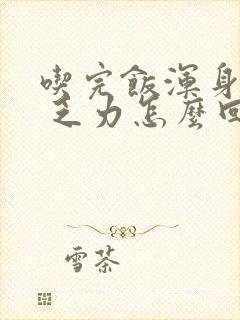 喫完飯渾身
乏力怎麼回
雪茶